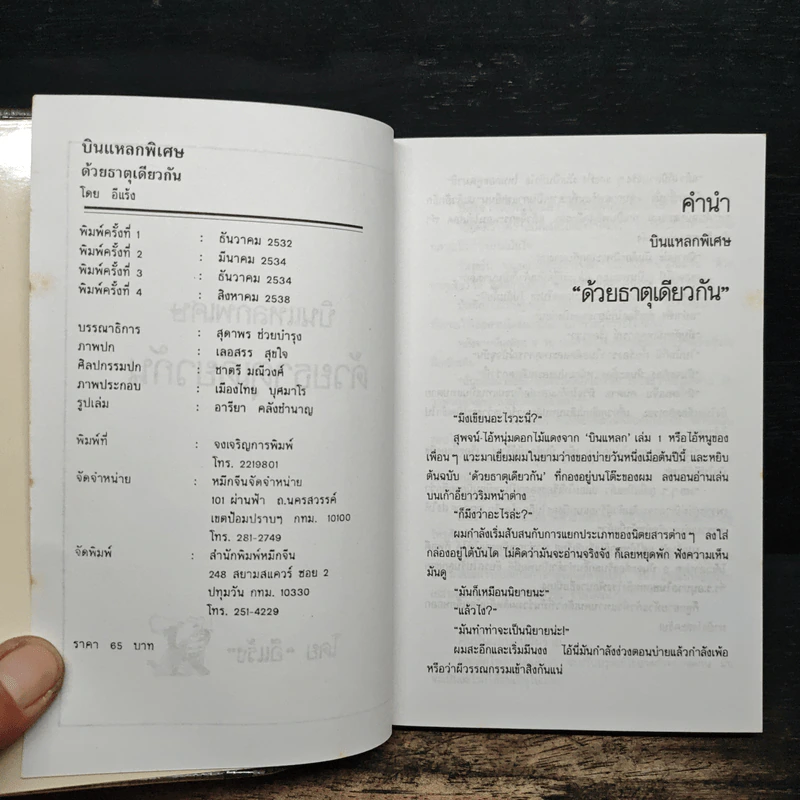 บินแหลกพิเศษ
ด้วยธาตุเดียวกัน
โดย อีแร้ง
พิมพ์ครั้งที่ 1 : ธันวาคม 2532
พิมพ์ครั้งที่ 2 : มีนาคม 2534
พิมพ์ครั้งที่ 3 : ธันวาคม 2534
พิมพ์ครั้งที่ 4 : สิงหาคม 2538
บรรณาธิการ : สุดาพร ช่วยบำรุง
ภาพปก : เลอสรร สุขใจ
ศิลปกรรมปก : ชาตรี มณีวงศ์
ภาพประกอบ : เมืองไทย บุศมาโร
รูปเล่ม : อารียา คลังชำนาญ
พิมพ์ที่ : จงเจริญการพิมพ์
โทร. 2219801
จัดจำหน่าย : หมึกจีนจัดจำหน่าย
101 ผ่านฟ้า ถ.นครสวรรค์
เขตป้อมปราบฯ กทม. 10100
โทร. 281-2749
จัดพิมพ์ : สำนักพิมพ์หมึกจีน
248 สยามสแควร์ ซอย 2
ปทุมวัน กทม. 10330
โทร. 251-4229
ราคา 65 บาท
คำนำ
บินแหลกพิเศษ
“ด้วยธาตุเดียวกัน”
“มึงเขียนอะไรวะนี่?”
สุพจน์-ไอ้หนุ่มดอกไม้แดงจาก ‘บินแหลก’ เล่ม 1 หรือไอ้หนูของ
เพื่อนๆ แวะมาเยี่ยมผมในยามว่างของบ่ายวันหนึ่งเมื่อต้นปีนี้ และหยิบ
ต้นฉบับ ‘ด้วยธาตุเดียวกัน’ ที่กองอยู่บนโต๊ะของผม ลงนอนอ่านเล่น
บนเก้าอี้ยาวริมหน้าต่าง
“ก็มึงว่าอะไรล่ะ?”
ผมกำลังเริ่มสับสนกับการแยกประเภทของนิตยสารต่างๆ ลงใส่
กล่องอยู่ใต้บันได ไม่คิดว่ามันจะอ่านจริงจัง ก็เลยหยุดพัก ฟังความเห็น
มันดู
“มันก็เหมือนนิยายนะ”
“แล้วไง?”
“มันทำท่าจะเป็นนิยายน่ะ!”
ผมสะอึกและเริ่มมึนงง ไอ้นี่มันกำลังง่วงตอนบ่ายแล้วกำลังเพ้อ
หรือว่าผีวรรณกรรมเข้าสิงกันแน่